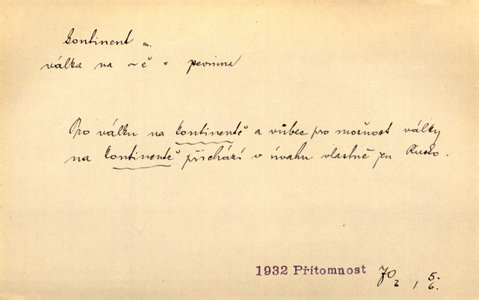 kontinent m.
válka na ~ě = pevnina
Pro válku na kontinentě a vůbec pro možnost války
na kontinentě přichází v úvahu vlastně jen Rusko.
1932 Přítomnost